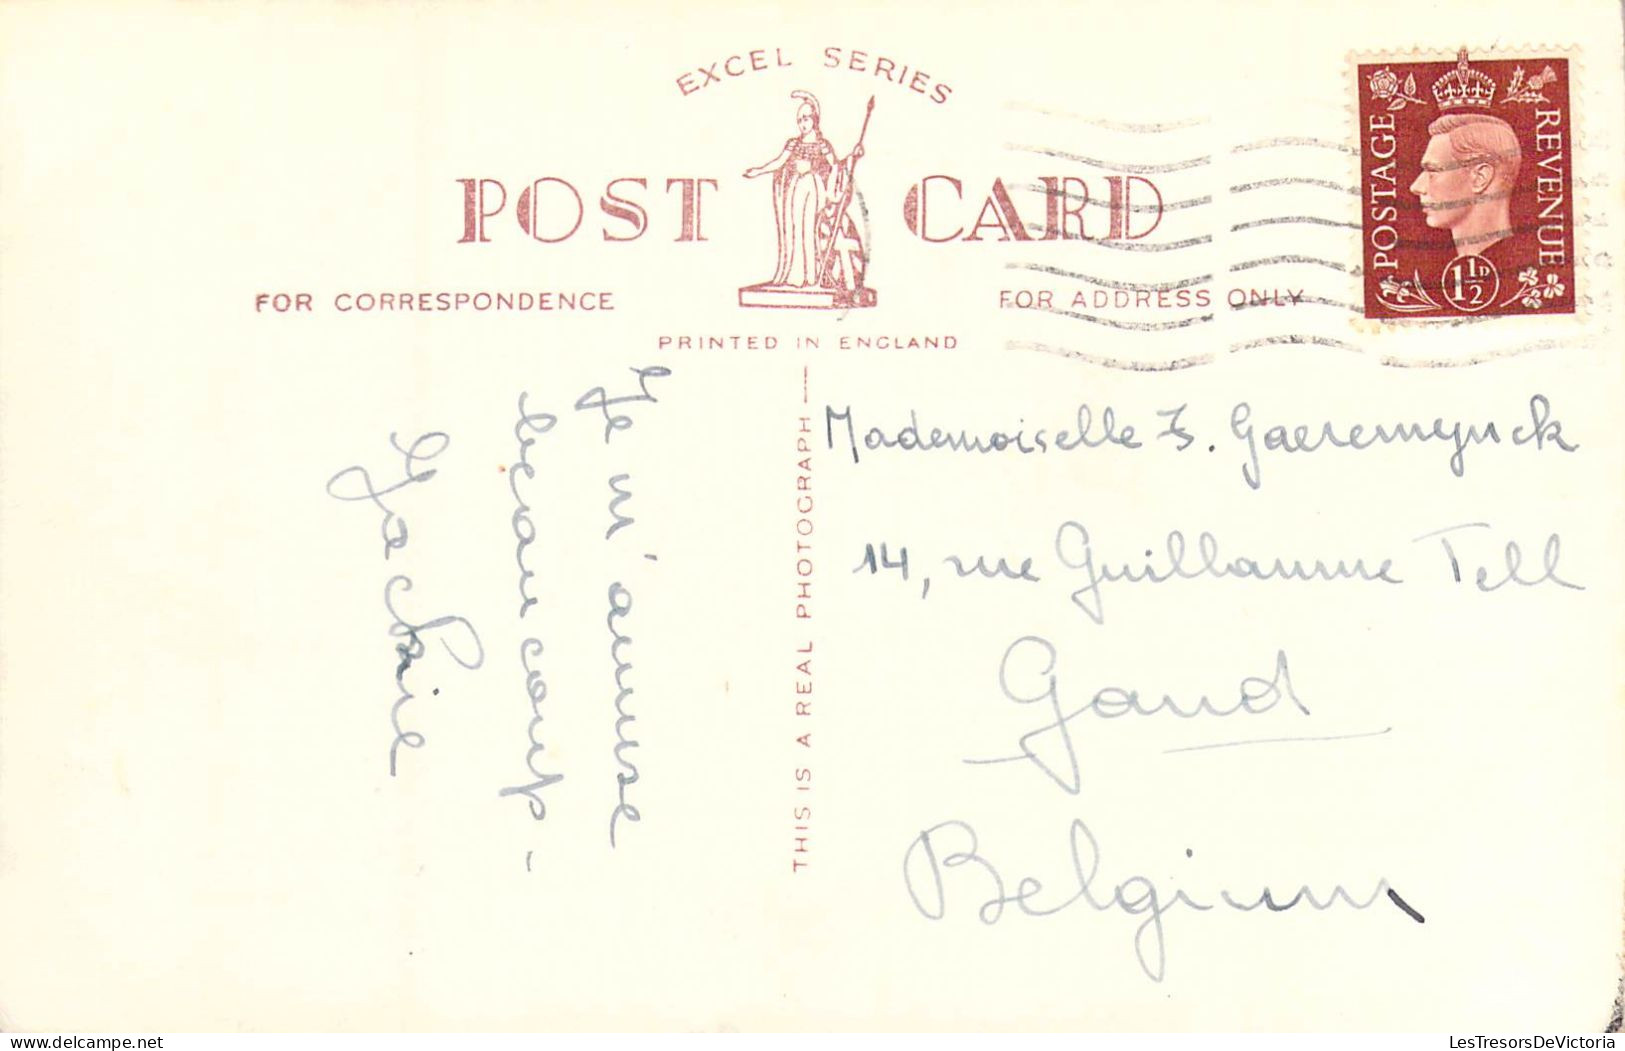 EXCEL SERIES
POST CARD
FOR CORRESPONDENCE
FOR ADDRESS ONLY
PRINTED IN ENGLAND
POSTAGE
REVENUE
1½D
Je m'amuse
beaucoup -
Jackie
THIS IS A REAL PHOTOGRAPH
Mademoiselle Gaeremynck
14, rue Guillaume Tell
Gand
Belgium
LesTresorsDeVictoria
delcampe.net